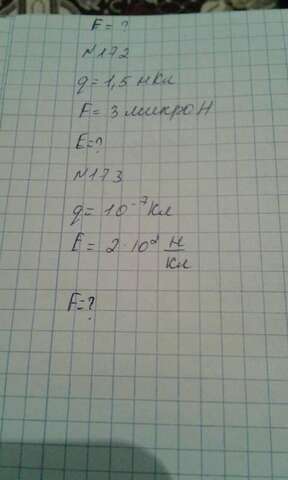 F = ?
N172
q = 1,5 нкл
F = 3 микро Н
E = ?
N173
q = 10⁻⁷ Кл
E = 2 · 10² Н/Кл
F = ?